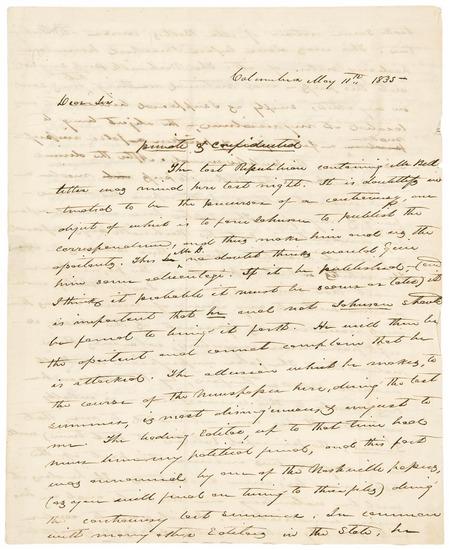 Columbia May 11th 1835 -
Dear Sir
private & confidential
The last Republican containing Mr Bell
letter was read here last night. It is doubtless in-
tended to be the precursor of a controversy, one
object of which is to force Johnson to publish the
correspondence, and thus make him and us the
This Mr B. no doubt thinks would give
him some advantage. If it be published, (and
I think it probable it must be sooner or later) it
is important that he and not Johnson should
be forced to bring it forth. He will then be
the and cannot complain that he
is attacked. The allusion which he makes, to
the course of the Newspaper here, during the last
summer, is most disingenuous & unjust to
me. The leading Editor, up to that time had
never been my political friend, and this fact
was announced by one of the Nashville papers,
(as you will find on turning to their files) during
the controversy last summer. In common
with many other Editors in the State, he